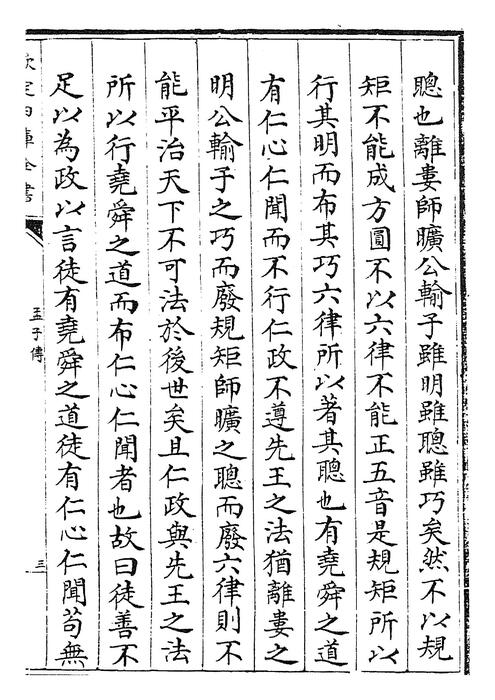 聰也離婁師曠公輸子雖明雖聰雖巧矣然不以規
矩不能成方圓不以六律不能正五音是規矩所以
行其明而布其巧六律所以著其聰也有堯舜之道
有仁心仁聞而不行仁政不遵先王之法猶離婁之
明公輸子之巧而廢規矩師曠之聰而廢六律則不
能平治天下不可法於後世矣且仁政與先王之法
所以行堯舜之道而布仁心仁聞者也故曰徒善不
足以為政以言徒有堯舜之道徒有仁心仁聞苟無
欽定四庫全書
孟子傳
三